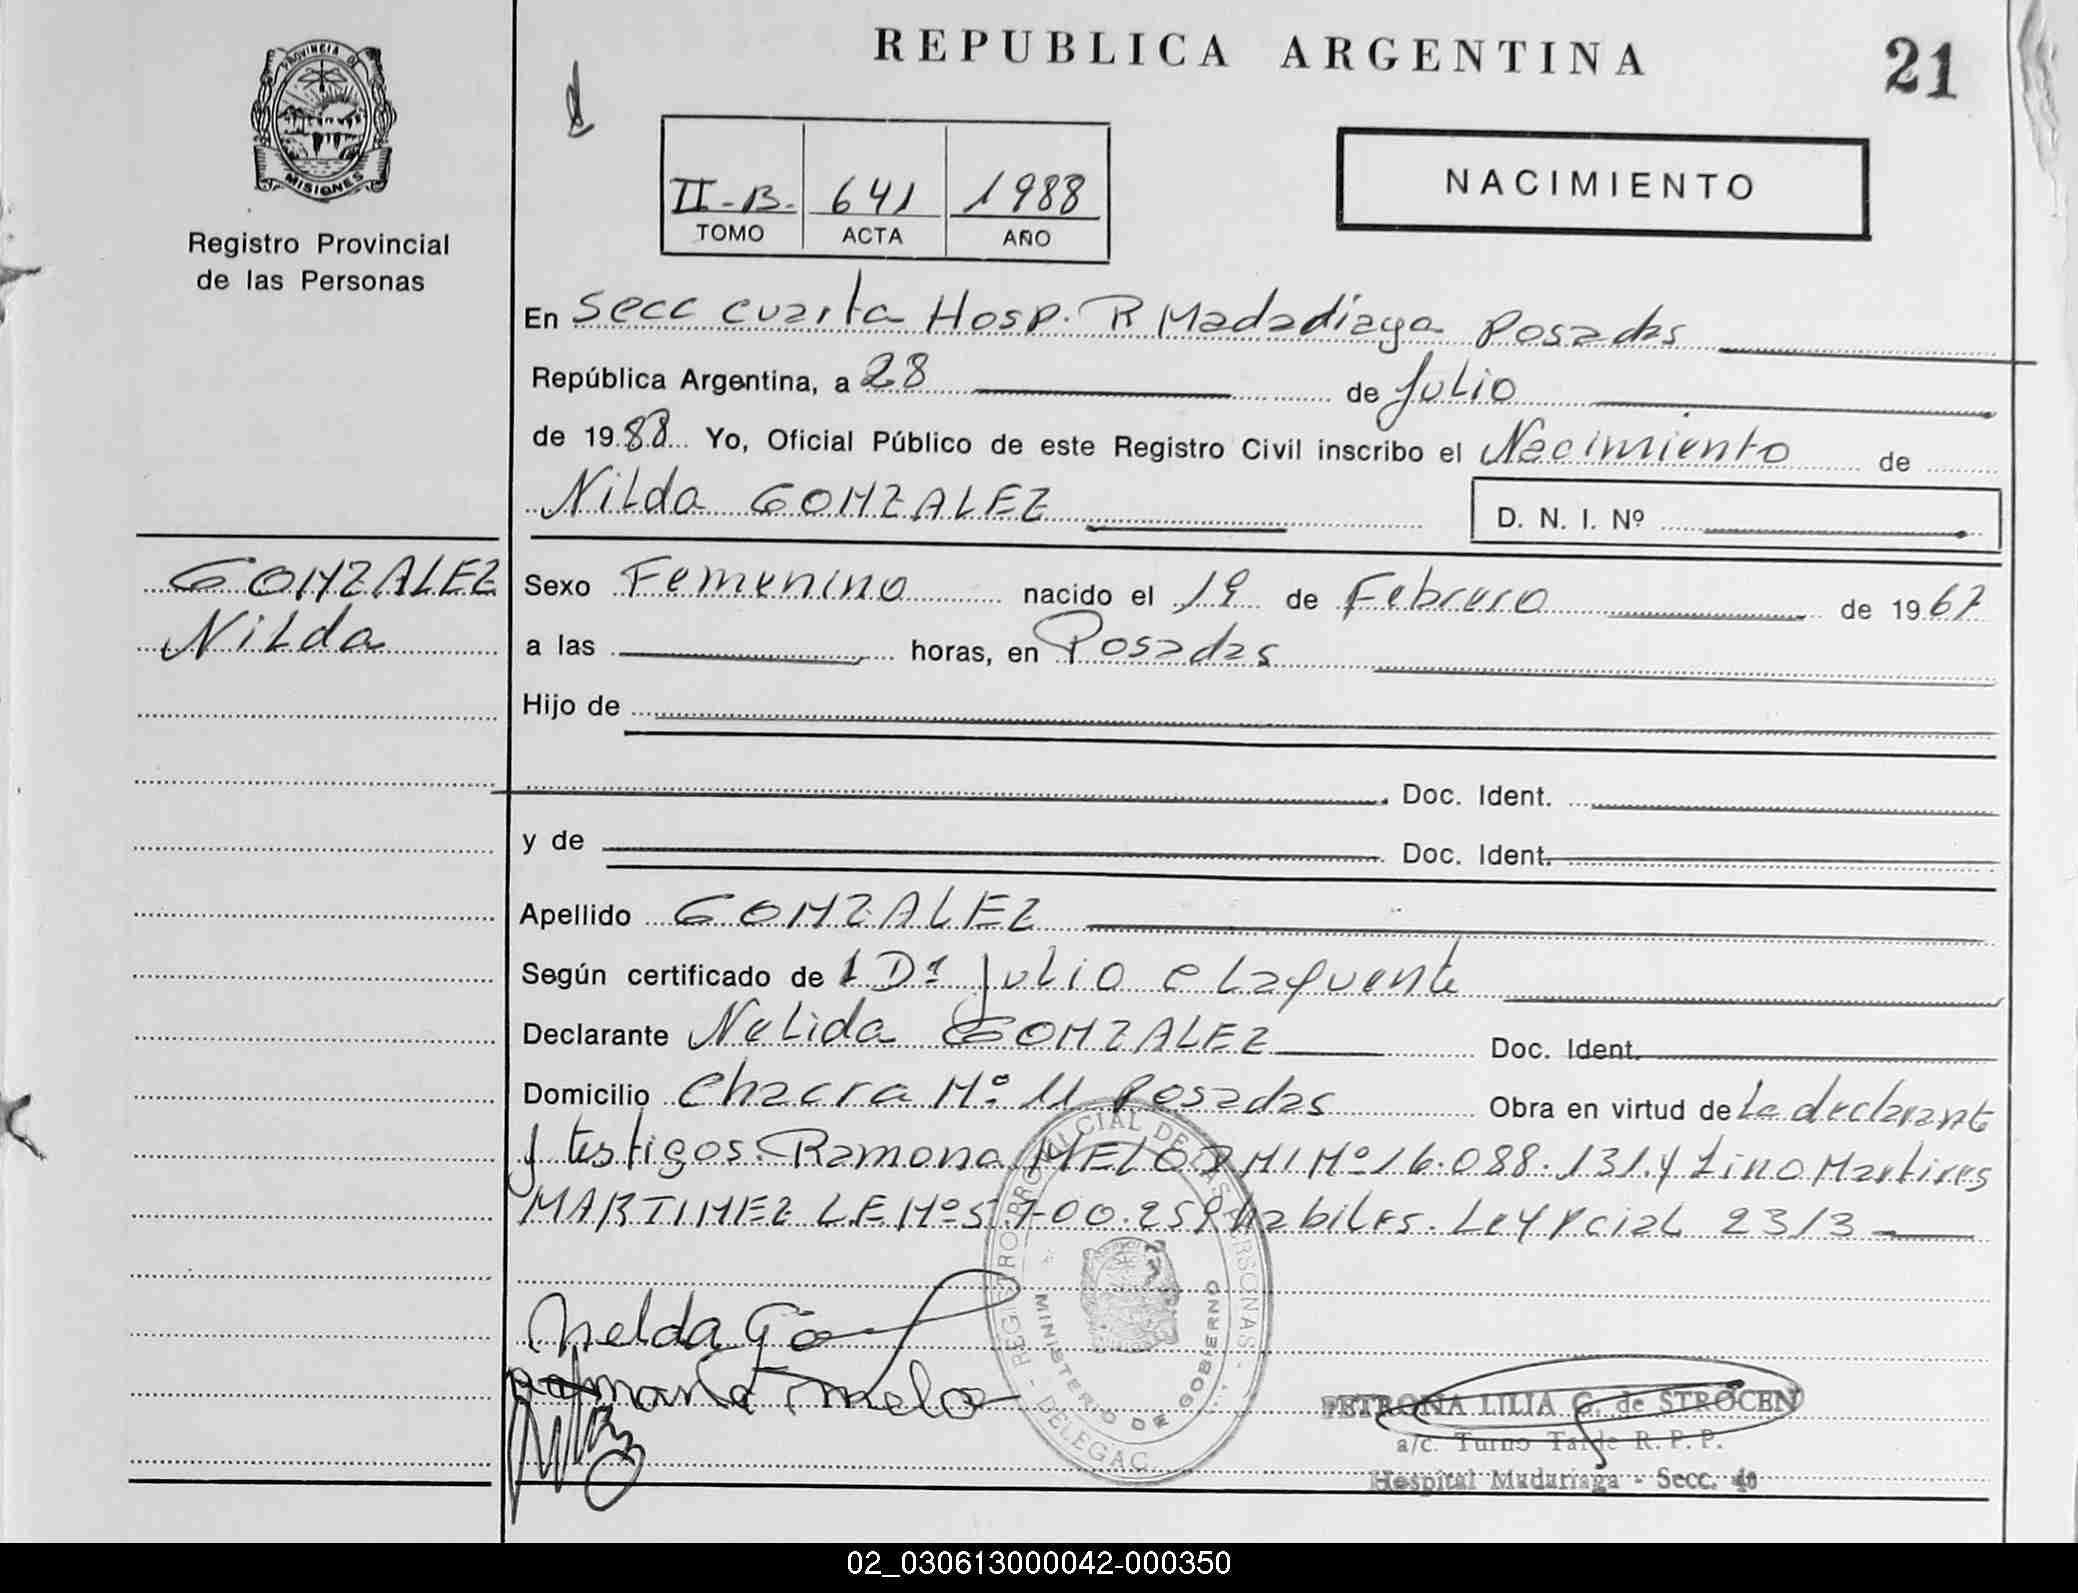 REPUBLICA ARGENTINA
21
PROVINCIA DE
MISIONES
Registro Provincial
de las Personas
II-B- 641 1988
TOMO ACTA AÑO
NACIMIENTO
En Secc cuarta Hosp. R Madadiaga Posadas
República Argentina, a 28 de Julio
de 1988 Yo, Oficial Público de este Registro Civil inscribo el Nacimiento de
Nilda GONZALEZ
D. N. I. Nº
GONZALEZ
Nilda
Sexo Femenino nacido el 19 de Febrero de 1967
a las horas, en Posadas
Hijo de
Doc. Ident.
y de Doc. Ident.
Apellido GONZALEZ
Según certificado de 1 Dr Julio C Lafuente
Declarante Nelida GONZALEZ Doc. Ident.
Domicilio Chacra Nº 11 Posadas Obra en virtud de La declarante
y testigos. Ramona MELO DNI Nº 16.088.131 y Lino Martires
MARTINEZ LE Nº 5.700.259 Habiles. Ley Pcial 2313
REGISTRO PROVINCIAL DE LAS PERSONAS - DELEGAC.
MINISTERIO DE GOBIERNO
Nelda Go
Ramona Melo
PETRONA LILIA G. de STROCEN
a/c. Turno Tarde R. P. P.
Hospital Madariaga - Secc. 4a
02_030613000042-000350